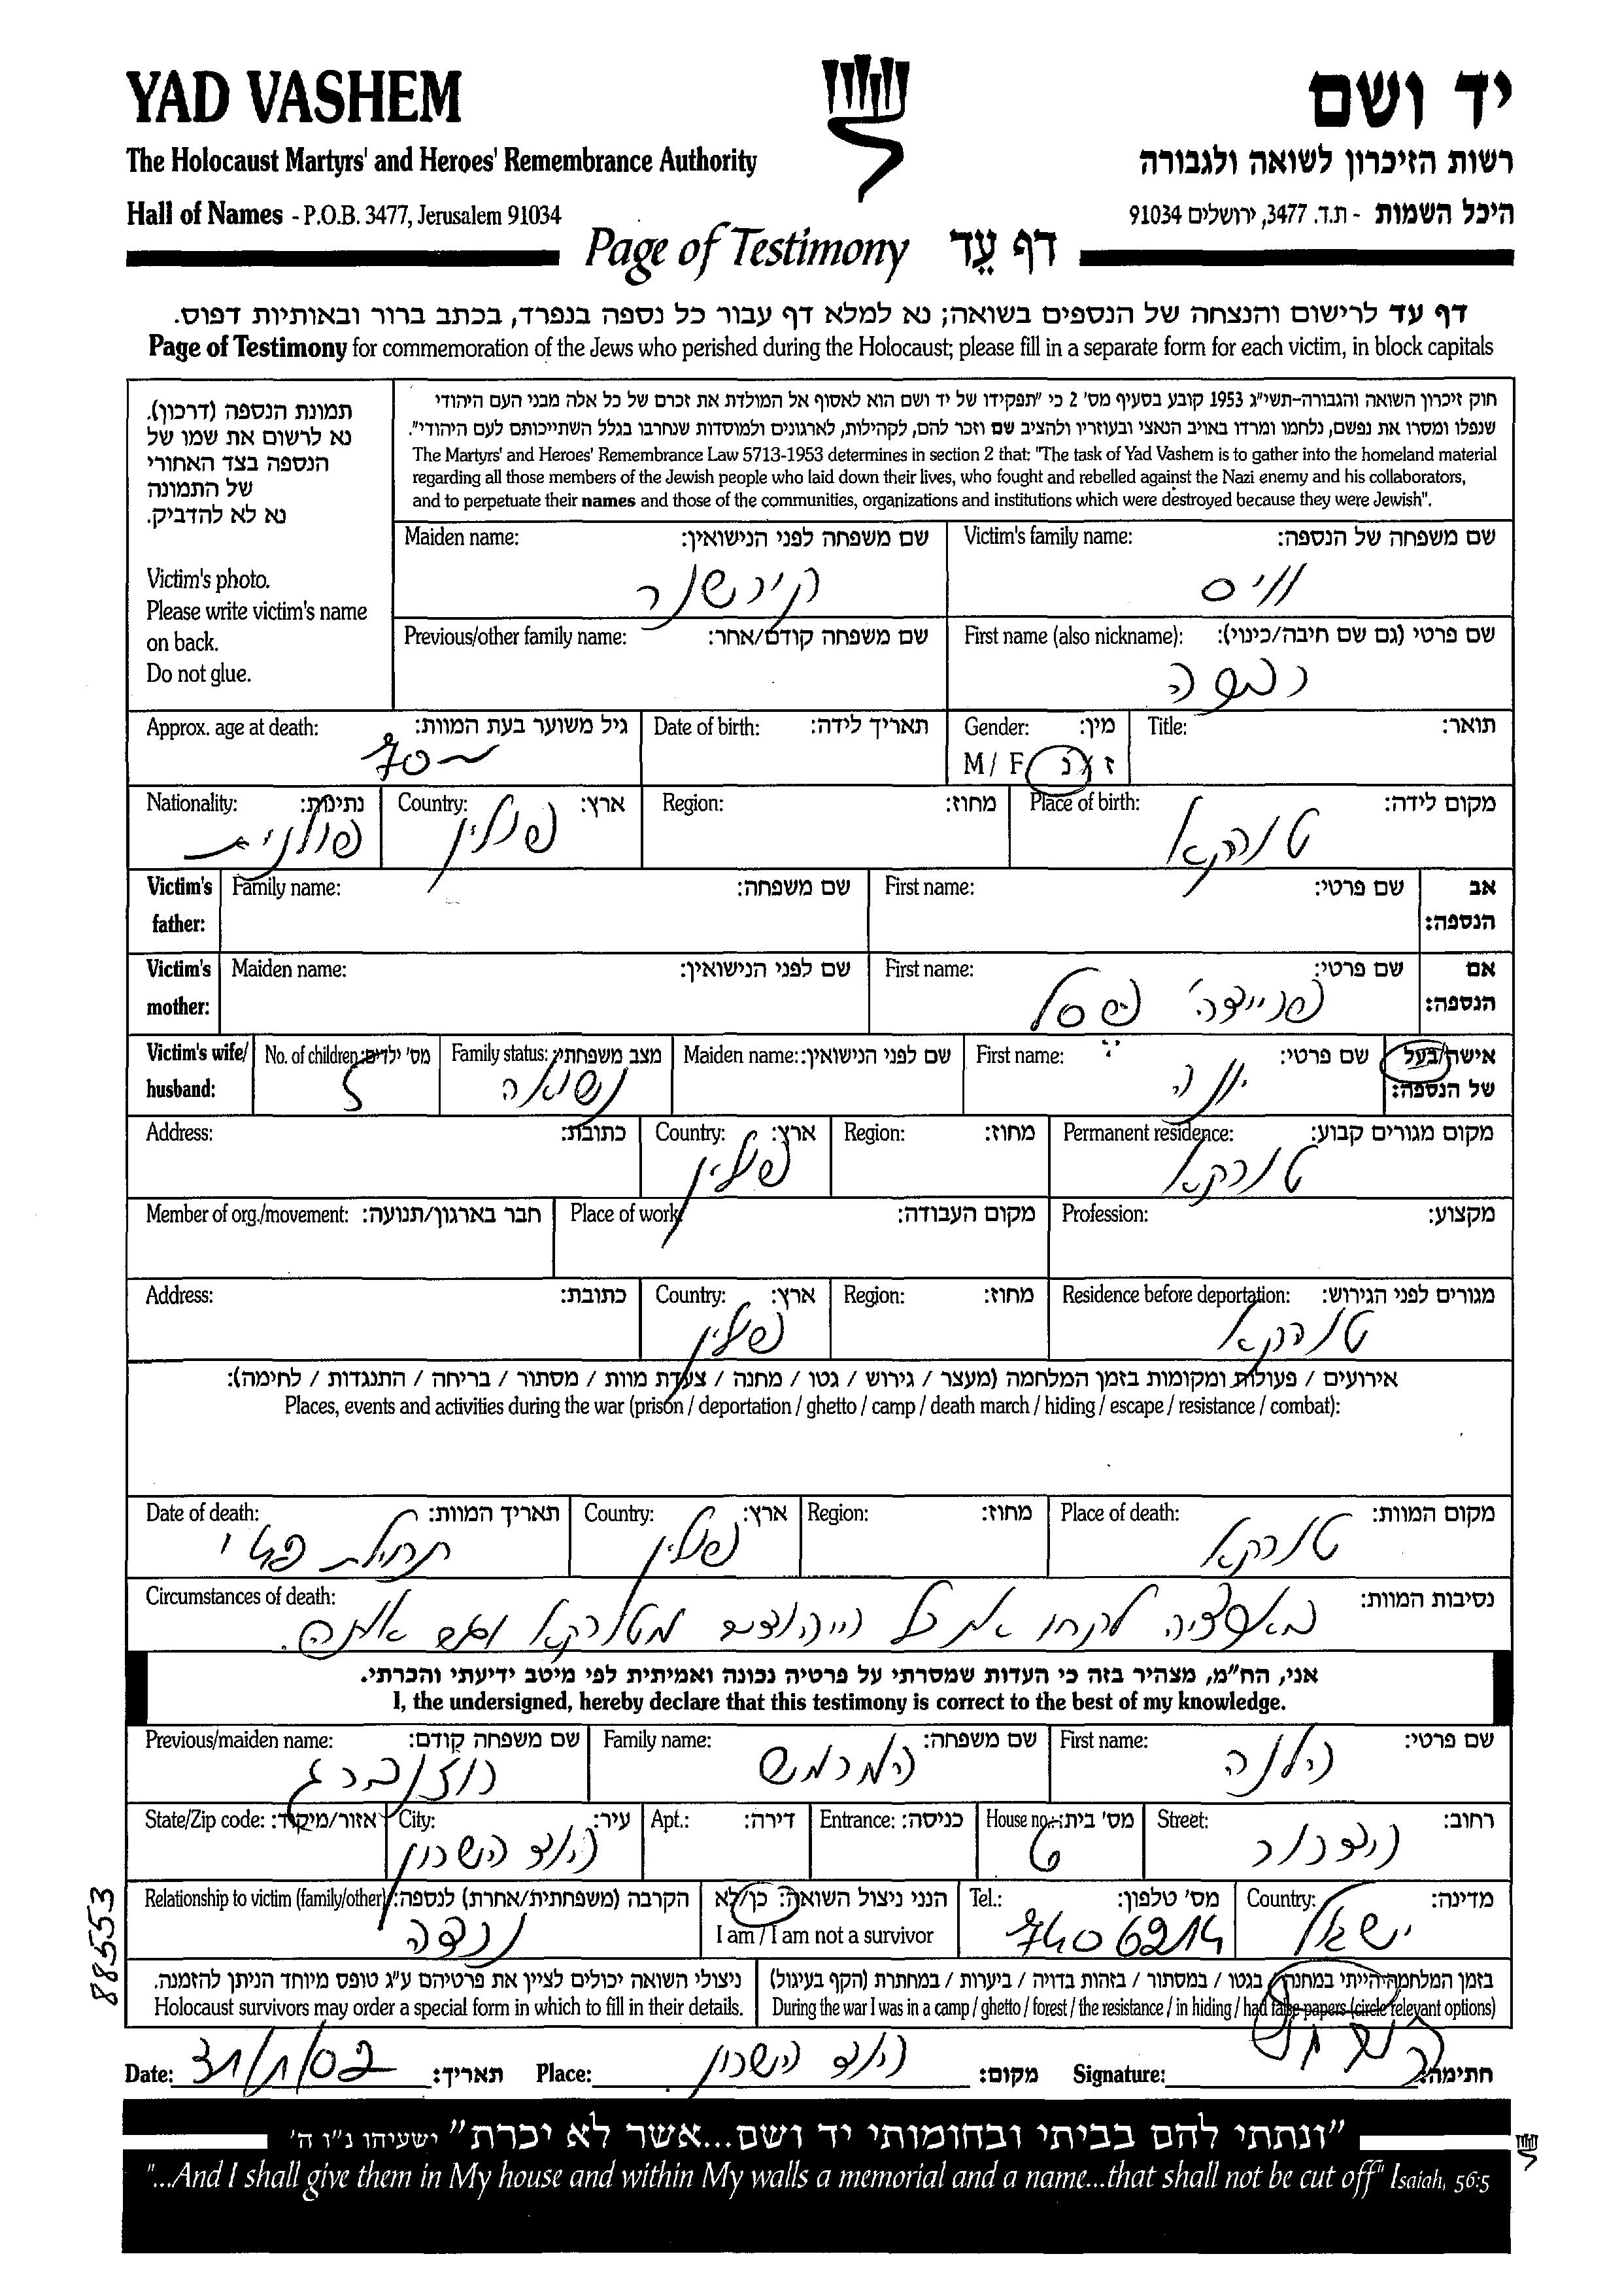 YAD VASHEM
יד ושם
The Holocaust Martyrs' and Heroes' Remembrance Authority
רשות הזיכרון לשואה ולגבורה
Hall of Names - P.O.B. 3477, Jerusalem 91034
היכל השמות - ת.ד. 3477, ירושלים 91034
Page of Testimony דף עֵד
דף עד לרישום והנצחה של הנספים בשואה; נא למלא דף עבור כל נספה בנפרד, בכתב ברור ובאותיות דפוס.
Page of Testimony for commemoration of the Jews who perished during the Holocaust; please fill in a separate form for each victim, in block capitals
תמונת הנספה (דרכון).
נא לרשום את שמו של
הנספה בצד האחורי
של התמונה
נא לא להדביק.
Victim's photo.
Please write victim's name
on back.
Do not glue.
חוק זיכרון השואה והגבורה-תשי"ג 1953 קובע בסעיף מס' 2 כי "תפקידו של יד ושם הוא לאסוף אל המולדת את זכרם של כל אלה מבני העם היהודי
שנפלו ומסרו את נפשם, נלחמו ומרדו באויב הנאצי ובעוזריו ולהציב שם וזכר להם, לקהילות, לארגונים ולמוסדות שנחרבו בגלל השתייכותם לעם היהודי".
The Martyrs' and Heroes' Remembrance Law 5713-1953 determines in section 2 that: "The task of Yad Vashem is to gather into the homeland material
regarding all those members of the Jewish people who laid down their lives, who fought and rebelled against the Nazi enemy and his collaborators,
and to perpetuate their names and those of the communities, organizations and institutions which were destroyed because they were Jewish".
Victim's family name: שם משפחה של הנספה:
ווים
Maiden name: שם משפחה לפני הנישואין:
קירשנר
First name (also nickname): שם פרטי (גם שם חיבה/כינוי):
רבקה
Previous/other family name: שם משפחה קודם/אחר:
Title: תואר:
Gender: מין:
M / F ז / נ
Date of birth: תאריך לידה:
Approx. age at death: גיל משוער בעת המוות:
70~
Place of birth: מקום לידה:
טורקא
Region: מחוז:
Country: ארץ:
פולין
Nationality: נתינות:
פולנית
Victim's father: Family name: שם משפחה: First name: שם פרטי: אב הנספה:
Victim's mother: Maiden name: שם לפני הנישואין: First name: שם פרטי: אם הנספה:
Victim's wife/ husband: אישה/בעל של הנספה:
First name: שם פרטי:
יונה
Maiden name: שם לפני הנישואין:
Family status: מצב משפחתי:
נשואה
No. of children: מס' ילדים:
5
Permanent residence: מקום מגורים קבוע:
טורקא
Region: מחוז:
Country: ארץ:
פולין
Address: כתובת:
Profession: מקצוע:
Place of work: מקום העבודה:
Member of org./movement: חבר בארגון/תנועה:
Residence before deportation: מגורים לפני הגירוש:
טורקא
Region: מחוז:
Country: ארץ:
פולין
Address: כתובת:
אירועים / פעולות ומקומות בזמן המלחמה (מעצר / גירוש / גטו / מחנה / צעדת מוות / מסתור / בריחה / התנגדות / לחימה):
Places, events and activities during the war (prison / deportation / ghetto / camp / death march / hiding / escape / resistance / combat):
Place of death: מקום המוות:
טורקא
Region: מחוז:
Country: ארץ:
פולין
Date of death: תאריך המוות:
תחילת
Circumstances of death: נסיבות המוות:
באקציה לקחו את כל היהודים מטורקא וגם אותם.
אני, הח"מ, מצהיר בזה כי העדות שמסרתי על פרטיה נכונה ואמיתית לפי מיטב ידיעתי והכרתי.
I, the undersigned, hereby declare that this testimony is correct to the best of my knowledge.
First name: שם פרטי:
הלנה
Family name: שם משפחה:
המרמש
Previous/maiden name: שם משפחה קודם:
רוזנברג
Street: רחוב:
הדרור
House no.: מס' בית:
6
Entrance: כניסה:
Apt.: דירה:
City: עיר:
הוד השרון
State/Zip code: אזור/מיקוד:
Country: מדינה:
ישראל
Tel.: מס' טלפון:
7406214
הנני ניצול השואה: כן/לא
I am / I am not a survivor
Relationship to victim (family/other): הקרבה (משפחתית/אחרת) לנספה:
נכדה
בזמן המלחמה הייתי במחנה / בגטו / במסתור / בזהות בדויה / ביערות / במחתרת (הקף בעיגול)
During the war I was in a camp / ghetto / forest / the resistance / in hiding / had false papers (circle relevant options)
ניצולי השואה יכולים לציין את פרטיהם ע"ג טופס מיוחד הניתן להזמנה.
Holocaust survivors may order a special form in which to fill in their details.
88553
Date: 31/1/02 תאריך: Place: הוד השרון מקום: Signature: חתימה:
"ונתתי להם בביתי ובחומותי יד ושם...אשר לא יכרת" ישעיהו נ"ו ה'
"...And I shall give them in My house and within My walls a memorial and a name...that shall not be cut off" Isaiah, 56:5